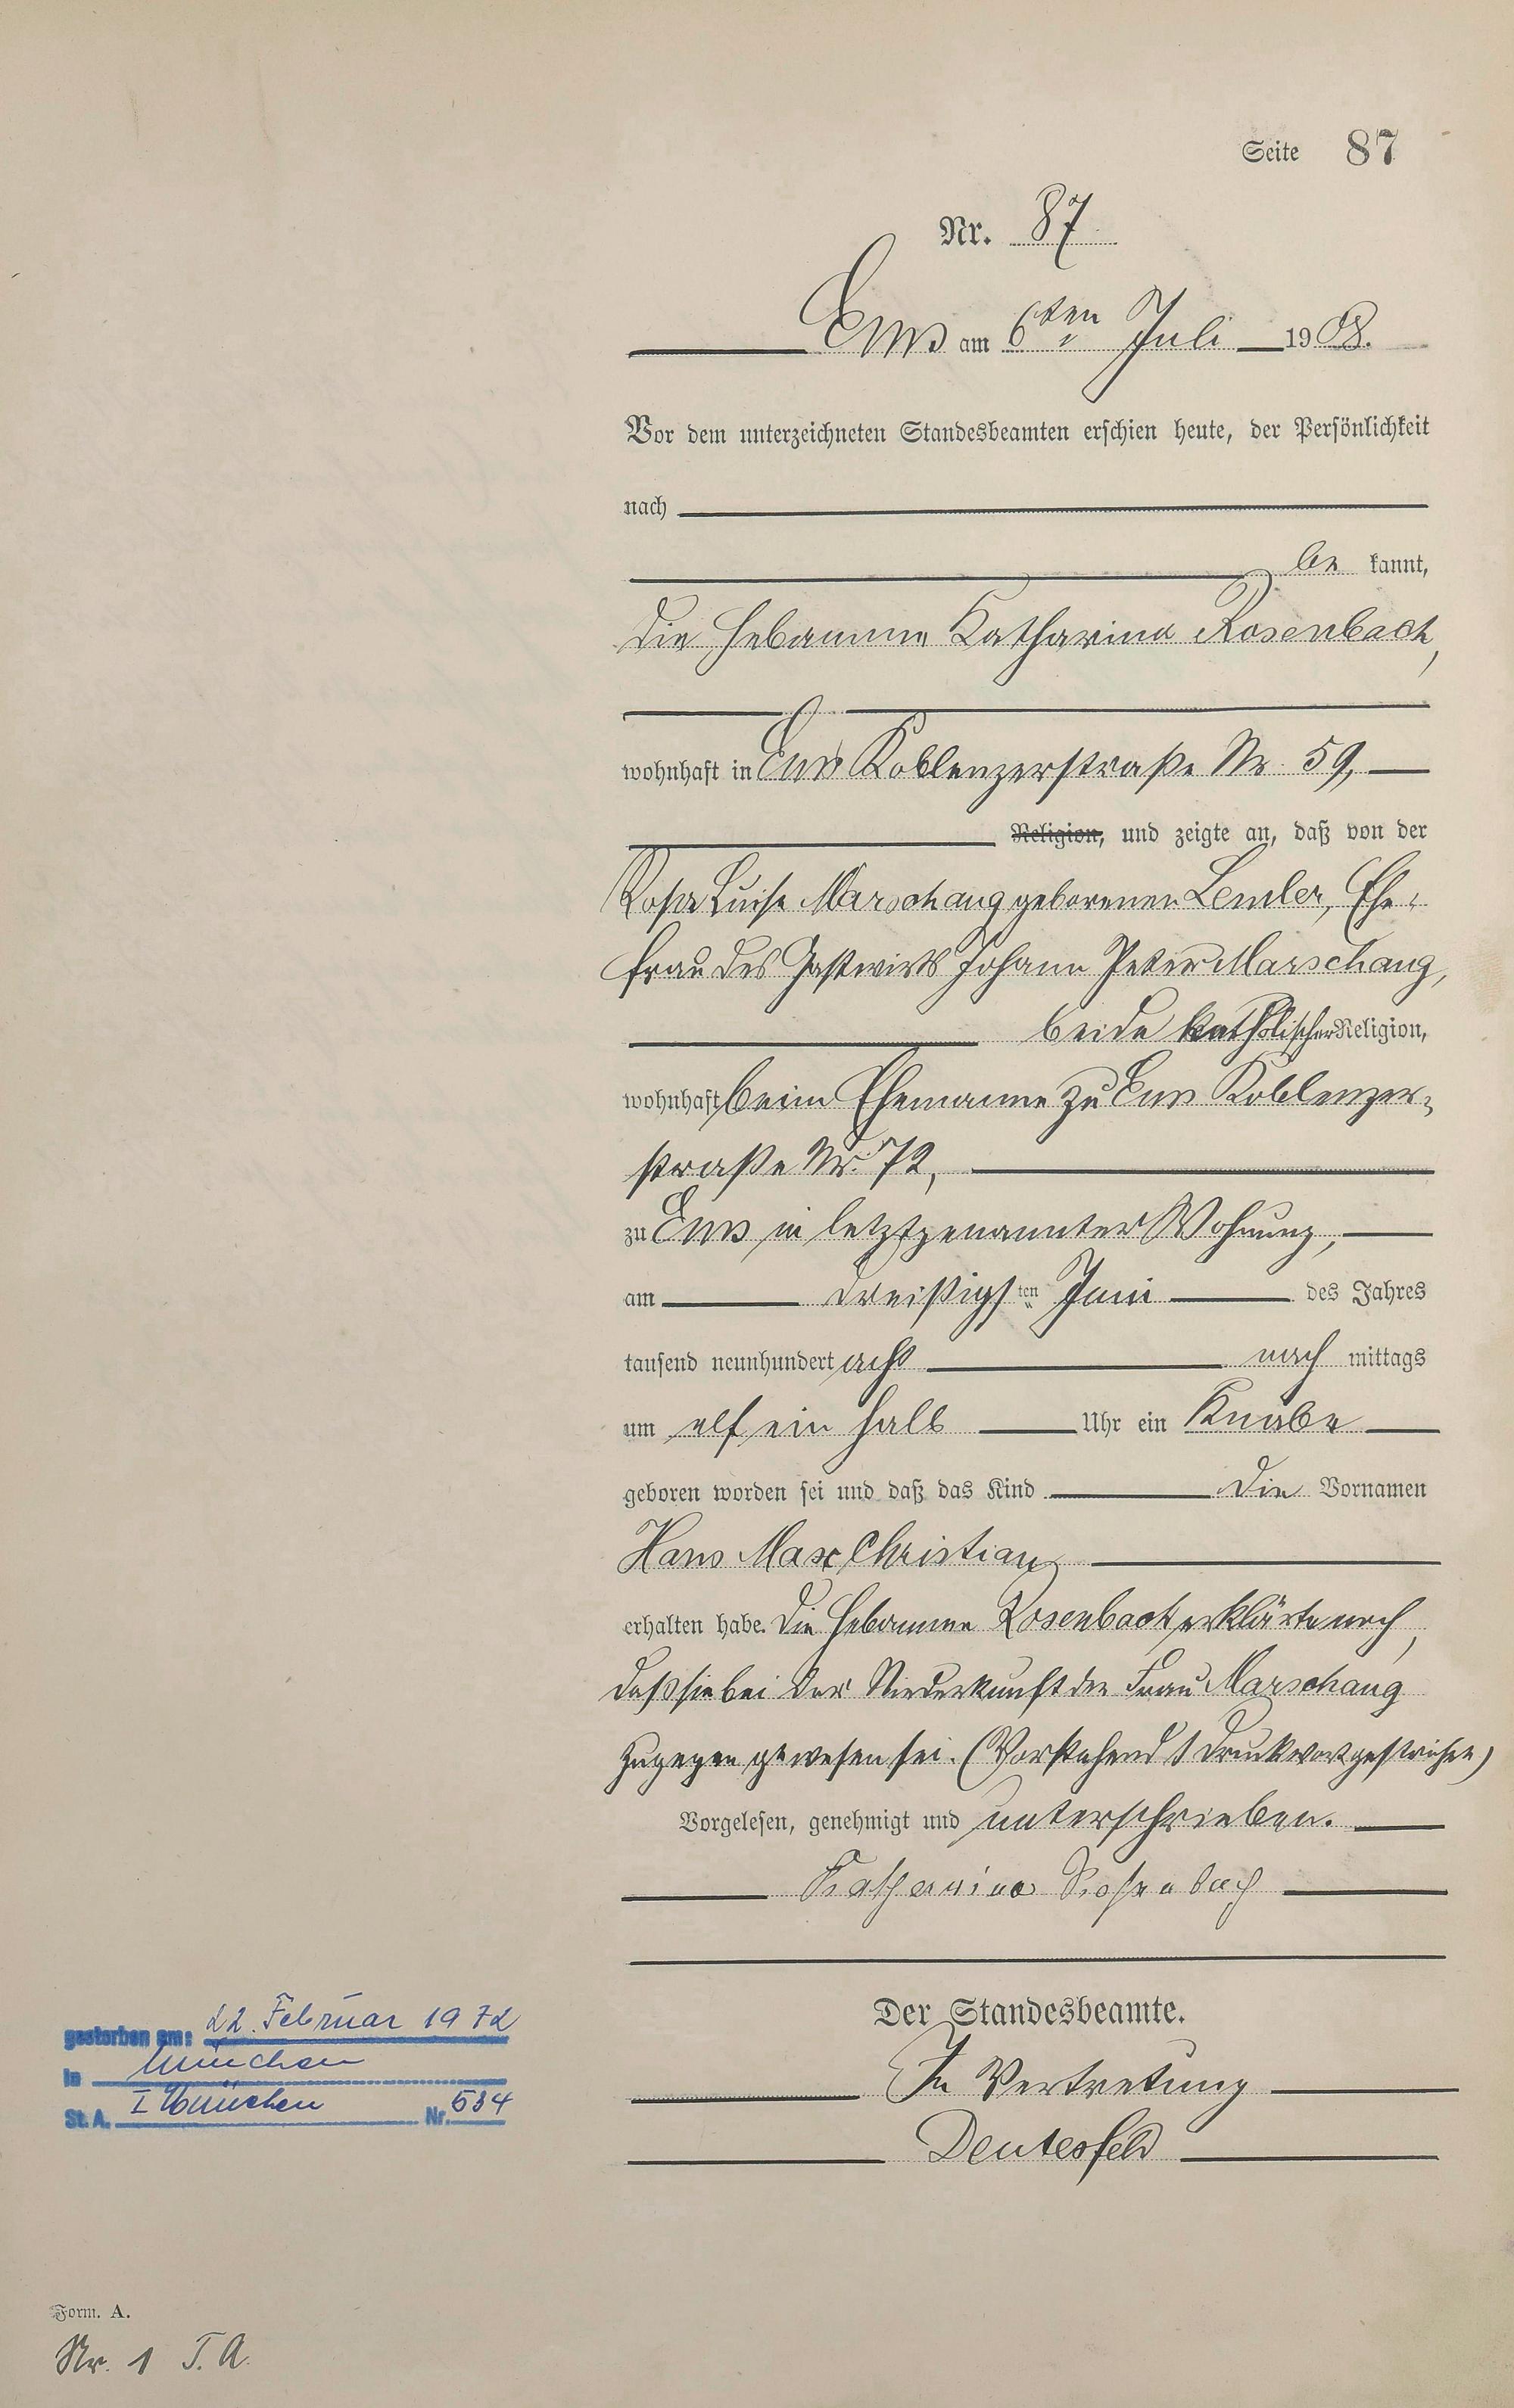 Seite 87
Nr. 87
Ems am 6ten Juli 1908.
Vor dem unterzeichneten Standesbeamten erschien heute, der Persönlichkeit
nach
be kannt,
die Hebamme Katharina Rosenbach,
wohnhaft in Ems Koblenzerstraße Nr. 59,
Religion, und zeigte an, daß von der
Rosa Luise Marschang geborenen Lemler, Ehe-
frau des Gastwirts Johann Peter Marschang,
beide katholischer Religion,
wohnhaft beim Ehemanne zu Ems Koblenzer-
straße Nr. 72,
zu Ems in letztgenannter Wohnung,
am dreißigsten Juni des Jahres
tausend neunhundert acht nach mittags
um elf ein halb Uhr ein Knabe
geboren worden sei und daß das Kind die Vornamen
Hans Max Christian
erhalten habe. Die Hebamme Rosenbach erklärte noch,
daß sie bei der Niederkunft der Frau Marschang
zugegen gewesen sei. (Vorstehend 1 Druckwort gestrichen)
Vorgelesen, genehmigt und unterschrieben.
Katharina Rosenbach
Der Standesbeamte.
In Vertretung
Deutesfeld
gestorben am: 22. Februar 1972
in München
St. A. I München Nr. 534
Form. A.
Nr. 1 T. A.